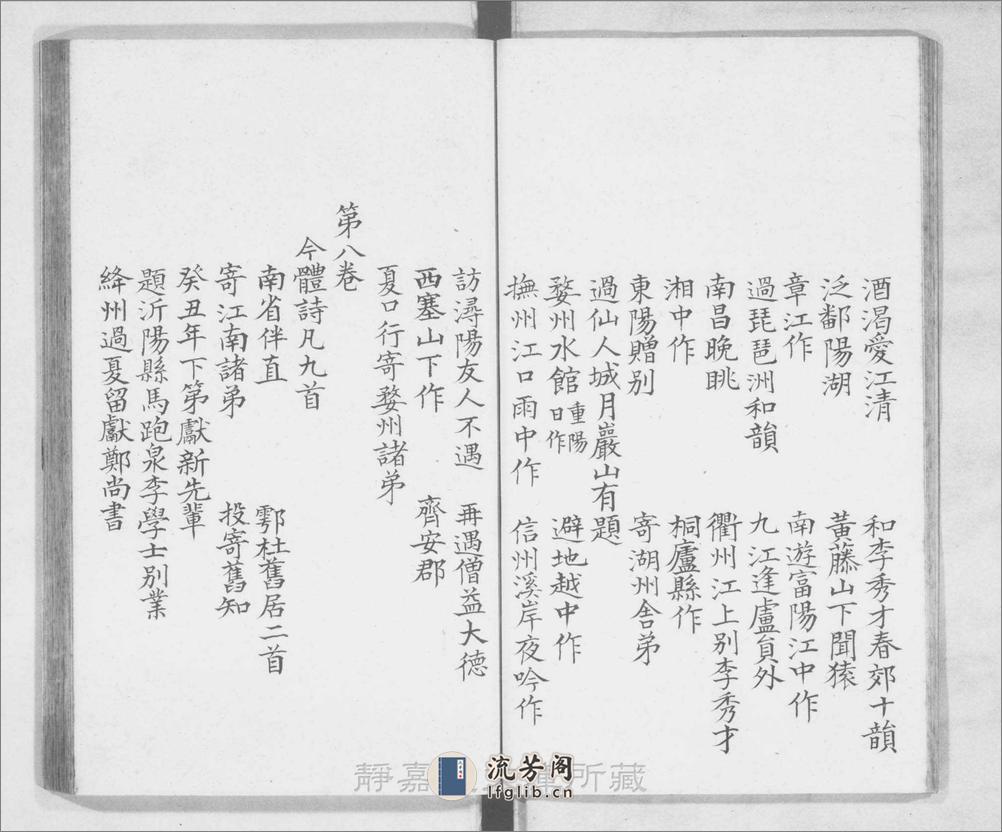 酒渴愛江清　和李秀才春郊十韻
泛鄱陽湖　黃藤山下聞猿
章江作　南遊富陽江中作
過琵琶洲和韻　九江逢盧員外
南昌晚眺　衢州江上別李秀才
湘中作　桐廬縣作
東陽贈別　寄湖州舍弟
過仙人城月巖山有題
婺州水館重陽日作　避地越中作
撫州江口雨中作　信州溪岸夜吟作
訪潯陽友人不遇　再遇僧益大德
西塞山下作　齊安郡
夏口行寄婺州諸弟
第八卷
今體詩凡九首
南省伴直　鄠杜舊居二首
寄江南諸弟　投寄舊知
癸丑年下第獻新先輩
題沂陽縣馬跑泉李學士別業
絳州過夏留獻鄭尚書
靜嘉所藏
流芳阁
lfglib.cn